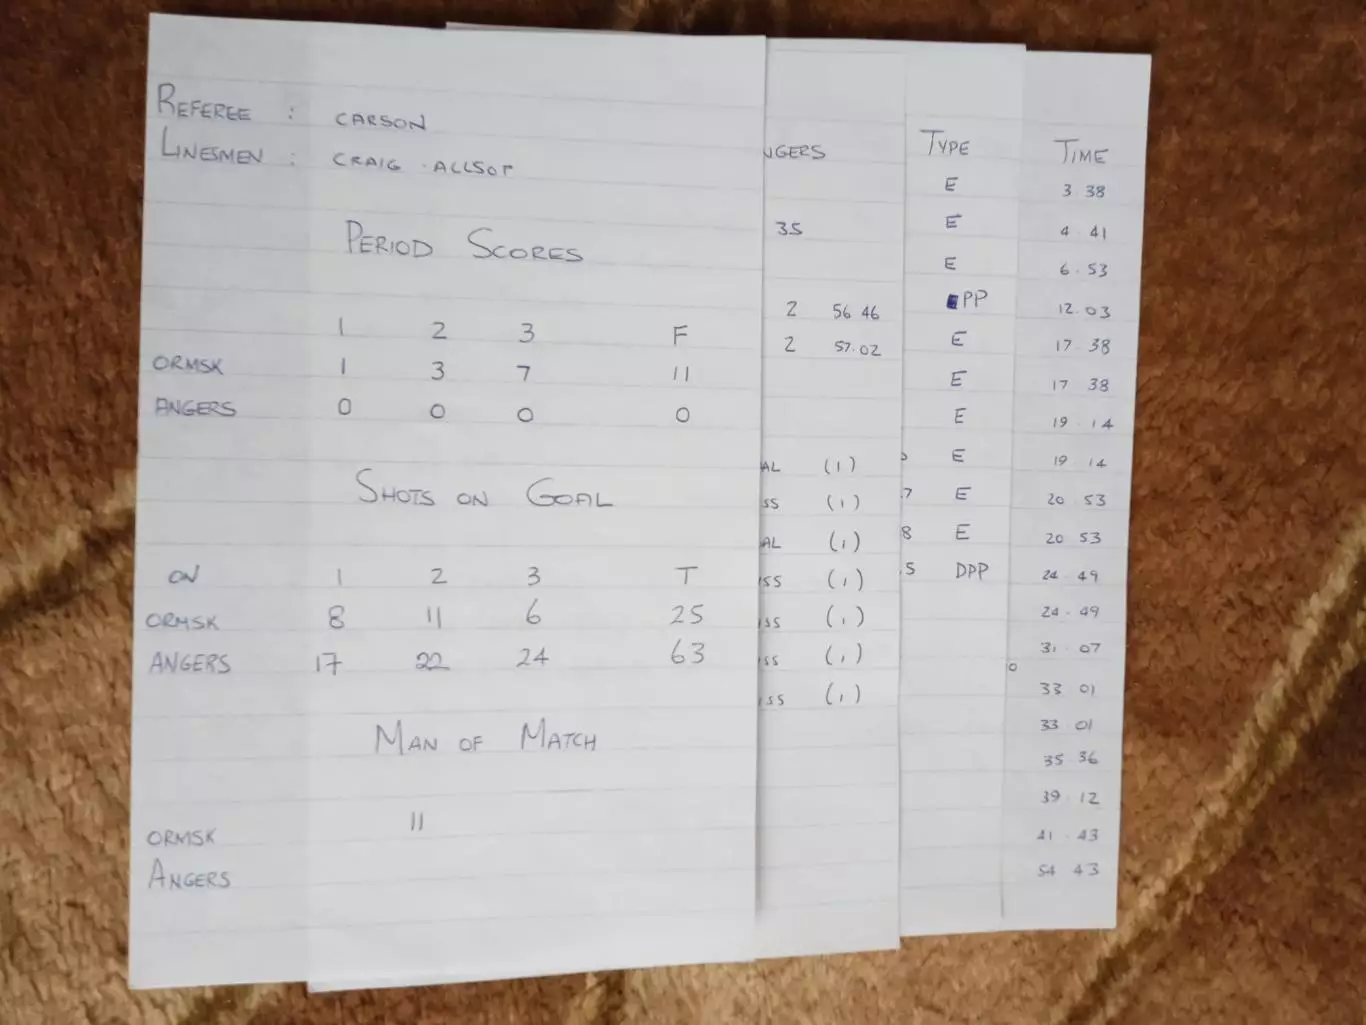 REFEREE : CARSON
LINESMEN : CRAIG ALLSOP
PERIOD SCORES
1 2 3 F
ORMSK 1 3 7 11
ANGERS 0 0 0 0
SHOTS ON GOAL
ON 1 2 3 T
ORMSK 8 11 6 25
ANGERS 17 22 24 63
MAN OF MATCH
ORMSK 11
ANGERS
NGERS
35
2 56 46
2 57.02
AL (1)
SS (1)
AL (1)
SS (1)
SS (1)
SS (1)
SS (1)
TYPE
E
E
E
PP
E
E
E
E
7 E
8 E
5 DPP
TIME
3 38
4 41
6.53
12.03
17 38
17 38
19 14
19 14
20 53
20 53
24.49
24.49
31.07
33 01
33 01
35 36
39.12
41.43
54 43